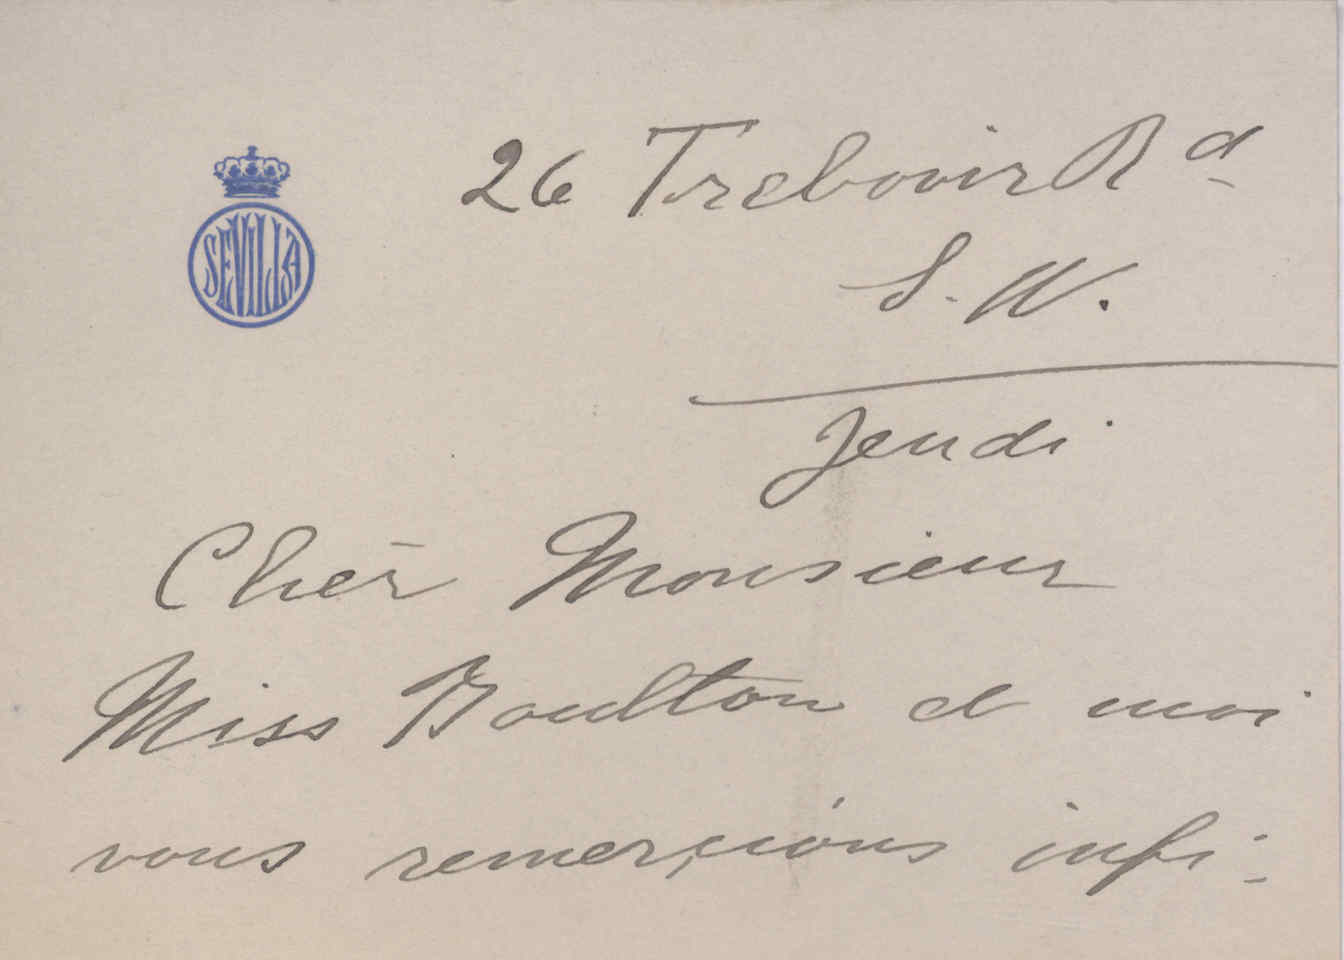 SEVILLA
26 Trebovir Rd
S. W.
Jeudi
Cher Monsieur
Miss Boulton et moi
vous remerçions infi-